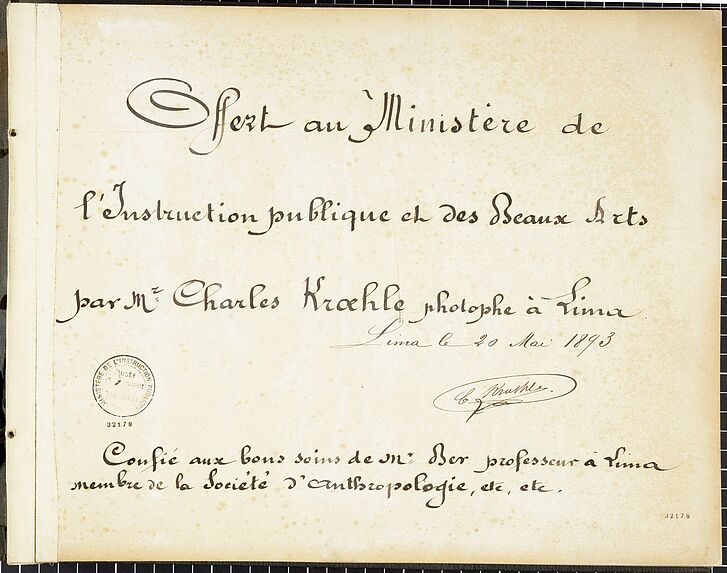 Offert au Ministère de
l'Instruction publique et des Beaux Arts
par Mr. Charles Krœhle photophe à Lima
Lima le 20 Mai 1893
C. Kroehle.
MINISTÈRE DE L'INSTRUCTION PUBLIQUE
MUSÉE
32178
Confié aux bons soins de Mr. Ber professeur à Lima
membre de la Société d'anthropologie, etc, etc.
32178